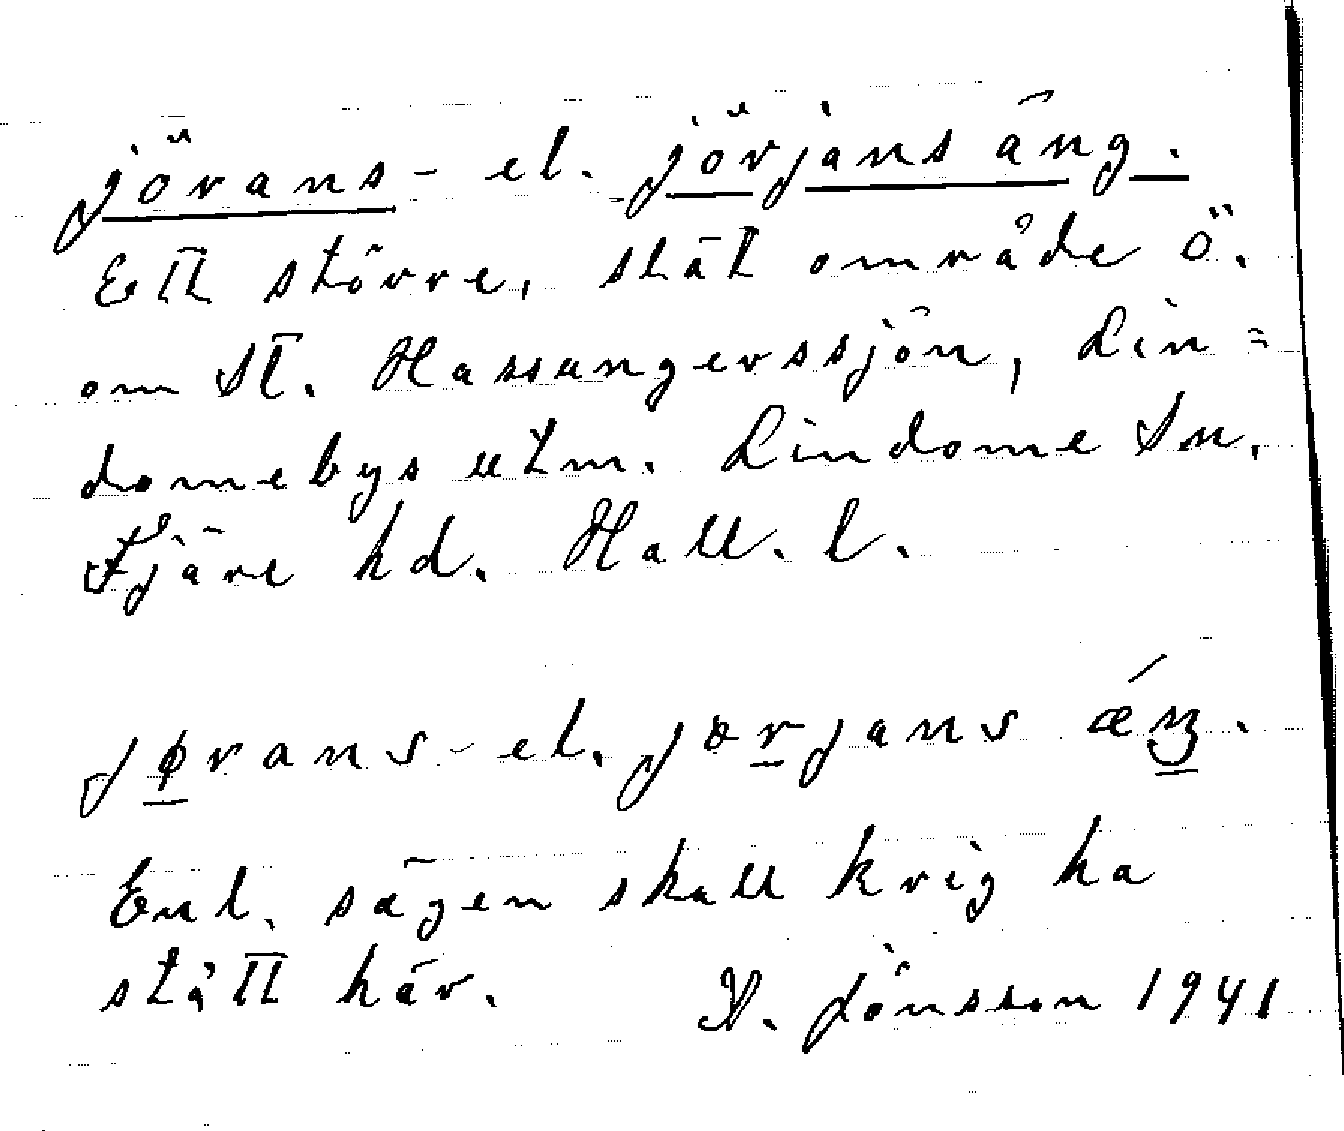 jörans- el. jörjans äng.
Ett större, slät område ö.
om St. Hassungerssjön, Lin=
domebys utm. Lindome sn.
Fjäre hd. Hall. l.
jø̱rans- el. jɷr̲jans ǽŋ̲.
Enl. sägen skall krig ha
stått här.
N. Jönsson 1941